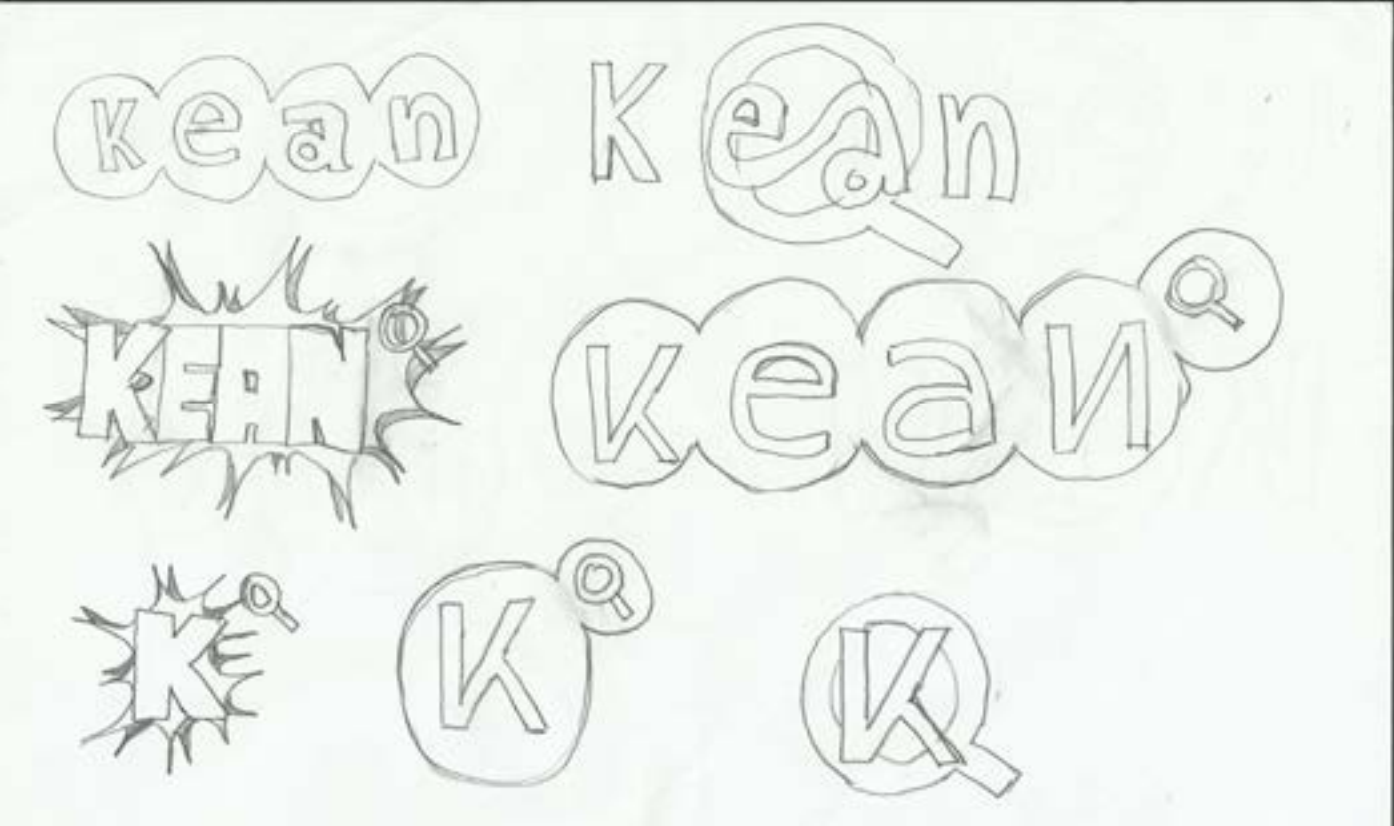 kean Kean
KEAN keaN
K K K